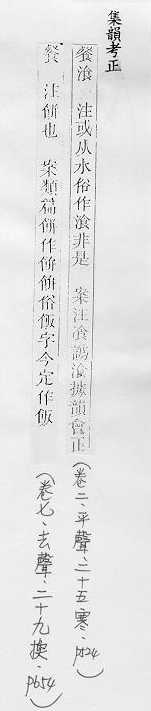 集韻考正
餐湌 注或从水俗作飡非是 案注飡譌湌據韻會正(卷二、平聲、二十五寒、p524)
餐 注䉺也 案類篇䉺作䉺䉺俗飯字今定作飯(卷七、去聲、二十九換、p654)